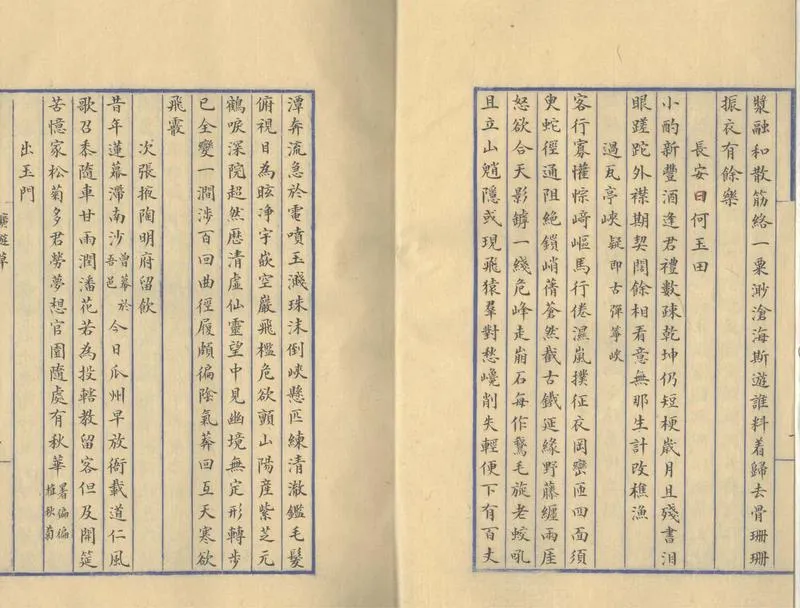 漿融和散筋絡一粟渺滄海斯遊誰料着歸去骨珊珊
振衣有餘樂
長安日何玉田
小酌新豐酒逢君禮數疎乾坤仍短梗歲月且殘書泪
眼蹉跎外襟期契闊餘相看意無那生計改樵漁
過瓦亭峽疑即古彈箏峽
客行寡懽悰崎嶇馬行倦濕嵐撲征衣岡巒匝四面須
臾蛇徑通阻絕鎖峭蒨蒼然截古鐵延緣野藤纏兩厓
怒欲合天影罅一綫危峰走崩石每作鵞毛旋老蛟吼
且立山魈隱或現飛猿羣對愁巉削失輕便下有百丈
潭奔流急於電噴玉濺珠沫倒峽懸匹練清澈鑑毛髮
俯視目為眩淨宇嵌空巖飛檻危欲顫山陽産紫芝元
鶴唳深院超然歴清虛仙靈望中見幽境無定形轉步
已全變一澗涉百回曲徑履頗徧陰氣莽回互天寒欲
飛霰
次張掖陶明府留飲
昔年蓮幕滯南沙曾幕於吾邑今日瓜州早放衙載道仁風
歌召黍隨車甘雨潤潘花若為投轄教留客但及開筵
苦憶家松菊多君勞夢想官園隨處有秋華署徧徧植秋菊
出玉門